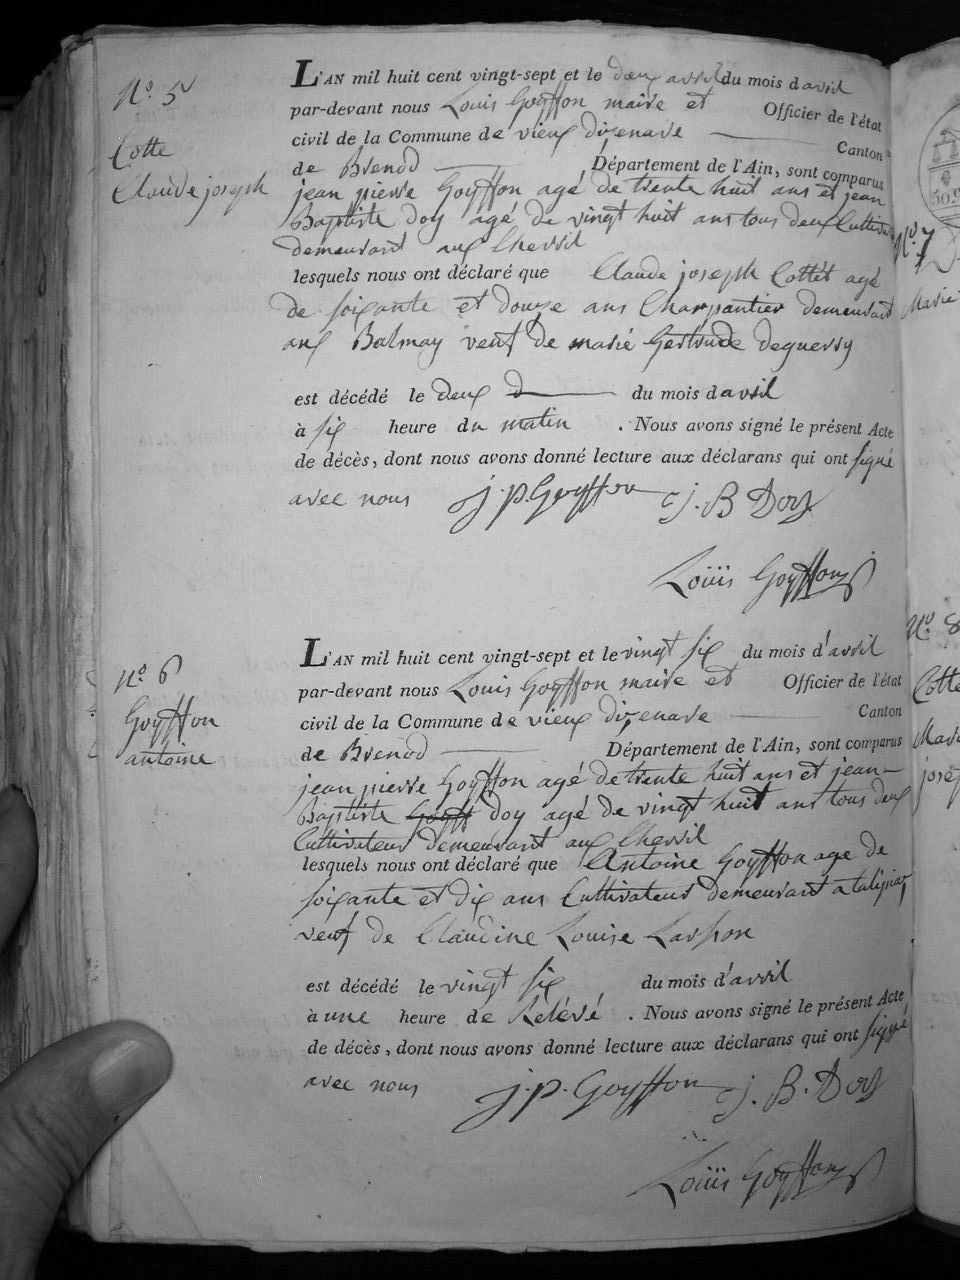 N.o 5
Cotte
Claude joseph
L'AN mil huit cent vingt-sept et le deux avril du mois d avril
par-devant nous Louis Goyffon maire et Officier de l'état
civil de la Commune de vieux dizenave Canton
de Brenod Département de l'Ain, sont comparus
jean pierre Goyffon agé de trente huit ans et jean
Baptiste doy agé de vingt huit ans tous deux Cultiv
demeurant aux Chevril
lesquels nous ont déclaré que Claude joseph Cottet agé
de soixante et douze ans Charpantier demeurant
aux Balmay veuf de marie Gertrude deguerry
est décédé le deux d du mois d avril
à six heure du matin . Nous avons signé le présent Acte
de décès, dont nous avons donné lecture aux déclarans qui ont signé
avec nous j. p. Goyffon J. B Doy
Louis Goyffon
N.o 6
Goyffon
antoine
L'AN mil huit cent vingt-sept et le vingt six du mois d'avril
par-devant nous Louis Goyffon maire et Officier de l'état
civil de la Commune de vieux dizenave Canton
de Brenod Département de l'Ain, sont comparus
jean pierre Goyffon agé de trente huit ans et jean
Baptiste Goyff doy agé de vingt huit ans tous deux
Cultivateur demeurant aux Chevril
lesquels nous ont déclaré que Antoine Goyffon age de
soixante et dix ans Cultivateur demeurant a
veuf de Claudine Louise
est décédé le vingt six du mois d'avril
à une heure de Relevé . Nous avons signé le présent Acte
de décès, dont nous avons donné lecture aux déclarans qui ont signé
avec nous j. p. Goyffon J. B. Doy
Louis Goyffon
N.o 7
Marie
N.o 8
Cotte